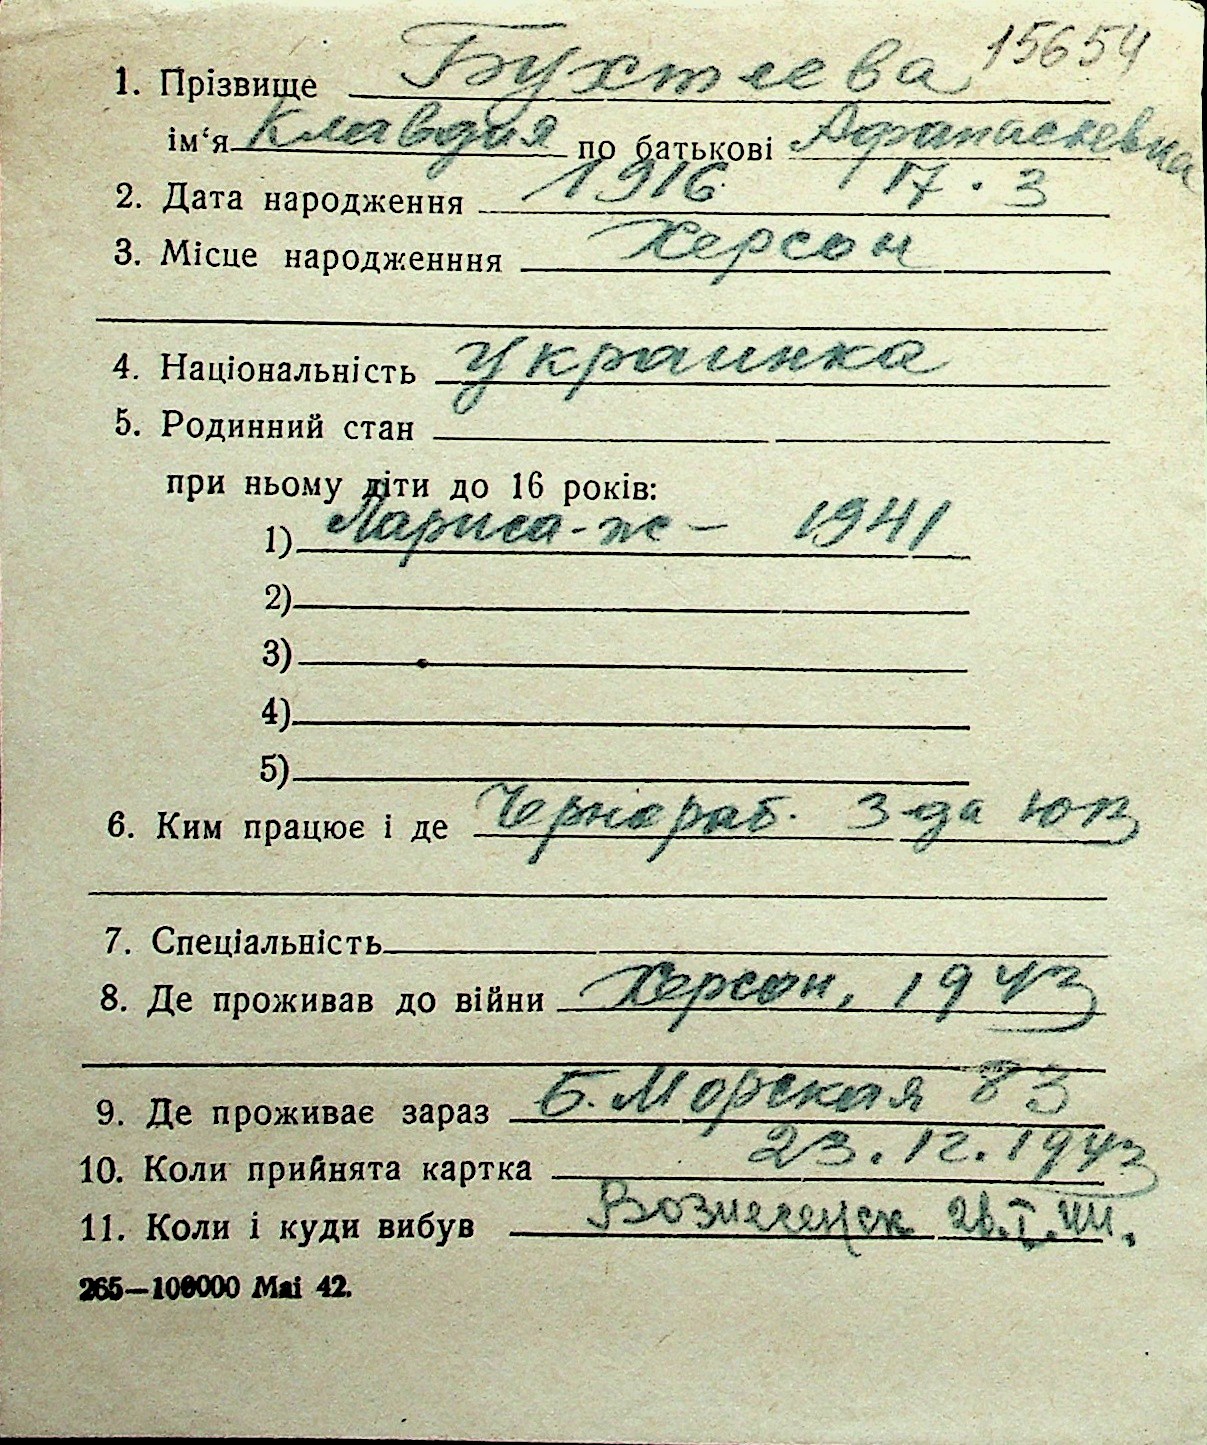 15654
1. Прізвище Бухтеева
ім‘я Клавдия по батькові Афанасиевна
2. Дата народження 1916 17.3
3. Місце народженння Херсон
4. Національність Украинка
5. Родинний стан
при ньому діти до 16 років:
1) Лариса - ж - 1941
2)
3)
4)
5)
6. Ким працює і де Чернораб. З-да
7. Спеціальність
8. Де проживав до війни Херсон, 1943
9. Де проживає зараз Б. Морская 83
10. Коли прийнята картка 23.12.1943
11. Коли і куди вибув Вознесенск
265—100000 Mai 42.